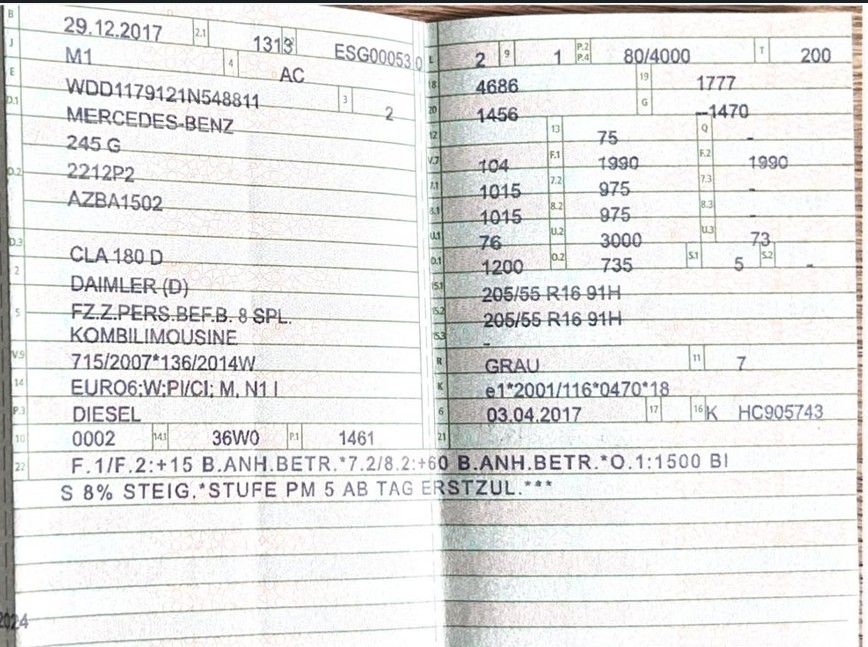 B 29.12.2017 2.1 1313 ESG00053 0
J M1 4 AC
E WDD1179121N548811 3 2
D.1 MERCEDES-BENZ
245 G
D.2 2212P2
AZBA1502
D.3 CLA 180 D
2 DAIMLER (D)
5 FZ.Z.PERS.BEF.B. 8 SPL.
KOMBILIMOUSINE
V.9 715/2007*136/2014W
14 EURO6;W;PI/CI; M, N1 I
P.3 DIESEL
10 0002 14.1 36W0 P.1 1461
L 2 9 1 P.2 P.4 80/4000 T 200
18 4686 19 1777
20 1456 G --1470
12 13 75 Q -
V.7 104 F.1 1990 F.2 1990
7.1 1015 7.2 975 7.3 -
8.1 1015 8.2 975 8.3 -
U.1 76 U.2 3000 U.3 73
O.1 1200 O.2 735 S.1 5 S.2 -
15.1 205/55 R16 91H
15.2 205/55 R16 91H
15.3 -
R GRAU 11 7
K e1*2001/116*0470*18
6 03.04.2017 17 16 K HC905743
21
22 F.1/F.2:+15 B.ANH.BETR.*7.2/8.2:+60 B.ANH.BETR.*O.1:1500 BI
S 8% STEIG.*STUFE PM 5 AB TAG ERSTZUL.***
2024